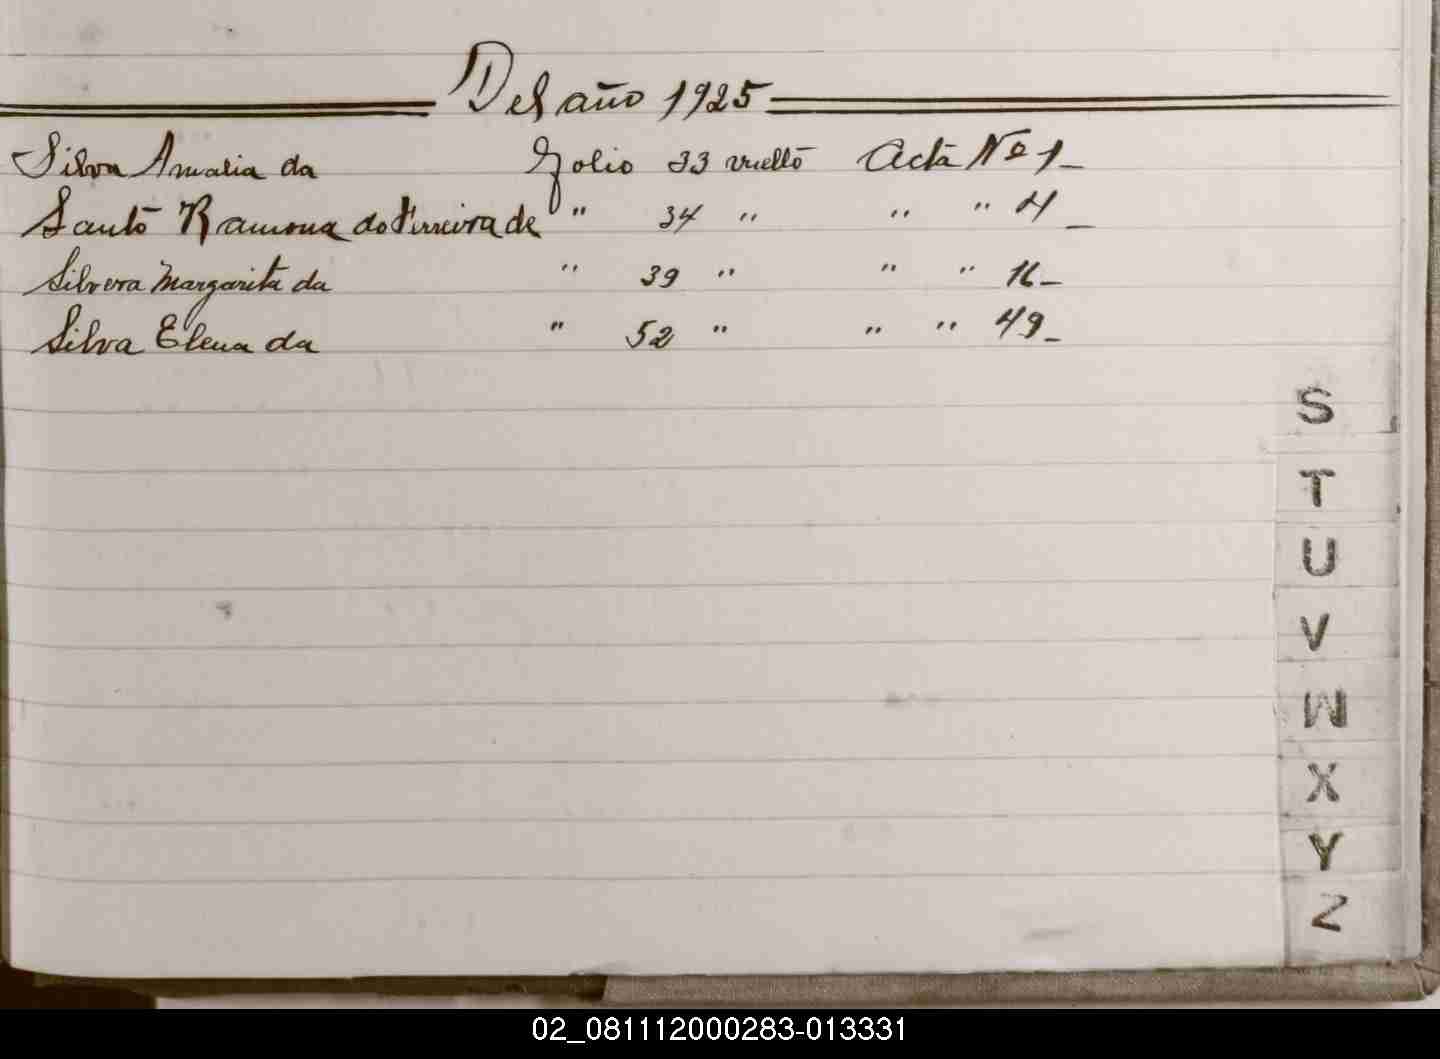 Del año 1925
Silva Amalia da Folio 33 vuelto Acta Nº 1_
Santo Ramona do Ferreira de " 34 " " " 4_
Silvera Margarita da " 39 " " " 16_
Silva Elena da " 52 " " " 49_
S
T
U
V
W
X
Y
Z
02_081112000283-013331